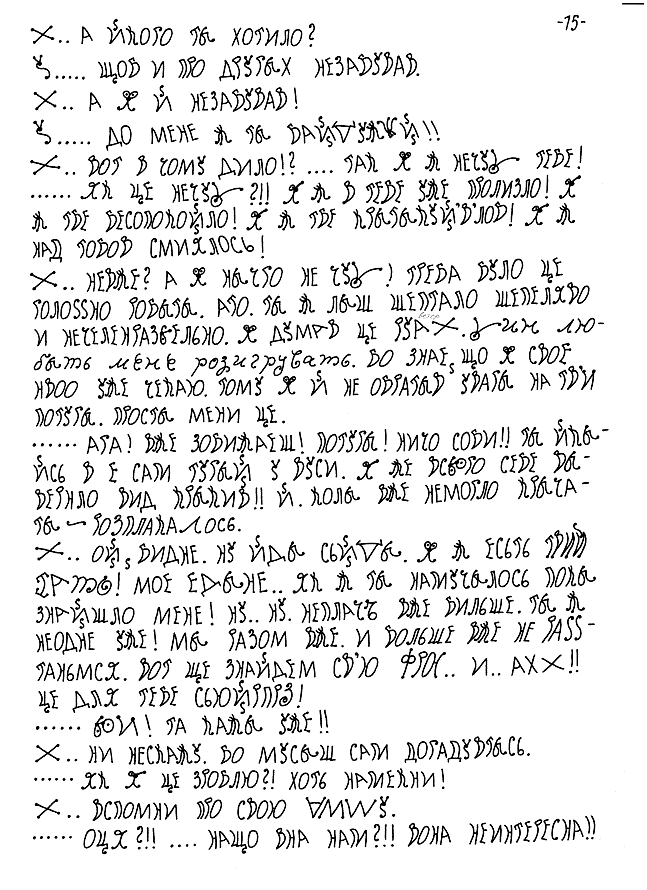 -15-
Х.. А ЙКОГО ТЫ ХОТИЛО?
..... ЩОБ И ПРО ДРУГЫХ НЕЗАБУВАВ.
Х.. А Я Й НЕЗАБУВАВ!
..... ДО МЕНЕ Ж ТЫ
Х.. ВОТ В ЧОМУ ДИЛО!? .... ТАК Я Ж НЕЧУВ ТЕБЕ!
...... ЯК ЦЕ НЕЧУВ ?!! Я Ж В ТЕБЕ УЖЕ ПРОЛИЗЛО! Я
Ж ТБЕ БЕСОПОКОЙЛО! Я Ж ТБЕ Я Ж
НАД ТОБОВ СМИЯЛОСЬ!
Х.. НЕВЖЕ? А Я НЫЧГО НЕ ЧУВ! ТРЕБА БУЛО ЦЕ
ГОЛОSSНО РОБЫТЫ. АГО. ТЫ Ж ЛЫШ ШЕПТАЛО ШЕПЕЛЯВО
И НЕЧЛЕНРАЗДЕЛЬНО. Я ДУМАВ ЦЕ Х. ЛЮ-
БЫТЬ МЕНЕ РОЗИГРУВАТЬ. БО ЗНАЕ, ЩО Я СВОЕ
НВОО УЖЕ ЧЕКАЮ. ТОМУ Я Й НЕ ОБРАТАВ УВАГЫ НА ТВ'И
ПОТУГЫ. ПРОСТЫ МЕНИ ЦЕ.
...... АГА! ВЖЕ ЗОБИЖАЕШ! ПОТУГЫ! НИЧО СОБИ!! ТЫ ЙКЫ-
ЙСЬ В Е САМ ТУГЫЙ У ВУСИ. Я ЖЕ ВСЬОГО СЕБЕ ВЫ-
ВЕРНЛО ВИД КРЫКИВ!! Й. КОЛЫ ВЖЕ НЕМОГЛО КРЫЧА-
ТЫ - РОЗПЛАКАЛОСЬ.
Х.. ОЙ, БИДНЕ. НУ ЙДЫ СЫЙДЫ. Я Ж ЕСЬТЬ ТВИЙ
! МОЕ ЕДЫНЕ.. ЯК Ж ТЫ НАМУЧЫЛОСЬ ПОКЫ
ЗНАЙШЛО МЕНЕ! НУ.. НУ. НЕПЛАЧЬ ВЖЕ БИЛЬШЕ. ТЫ Ж
НЕОДНЕ УЖЕ! МЫ РАЗОМ ВЖЕ. И БОЛЬШЕ ВЖЕ НЕ РАSS-
ТАНЬМСЯ. ВОТ ЩЕ ЗНАЙДЕМ СВ'Ю ФРОС.. И.. АХХ!!
ЦЕ ДЛЯ ТЕБЕ СЬЮЙРПРЗ!
...... ОЙ! ТА КАЖЫ УЖЕ!!
Х.. НИ НЕСКАЖУ. БО МУСЫШ САМ ДОГАДУВТЫСЬ.
...... ЯК Я ЦЕ ЗРОБЛЮ?! ХОТЬ НАМЕКНИ!
Х.. ВСПОМНИ ПРО СВОЮ
...... ОЦЯ?!! .... НАЩО ВНА НАМ?!! ВОНА НЕИНТЕРЕСНА!!